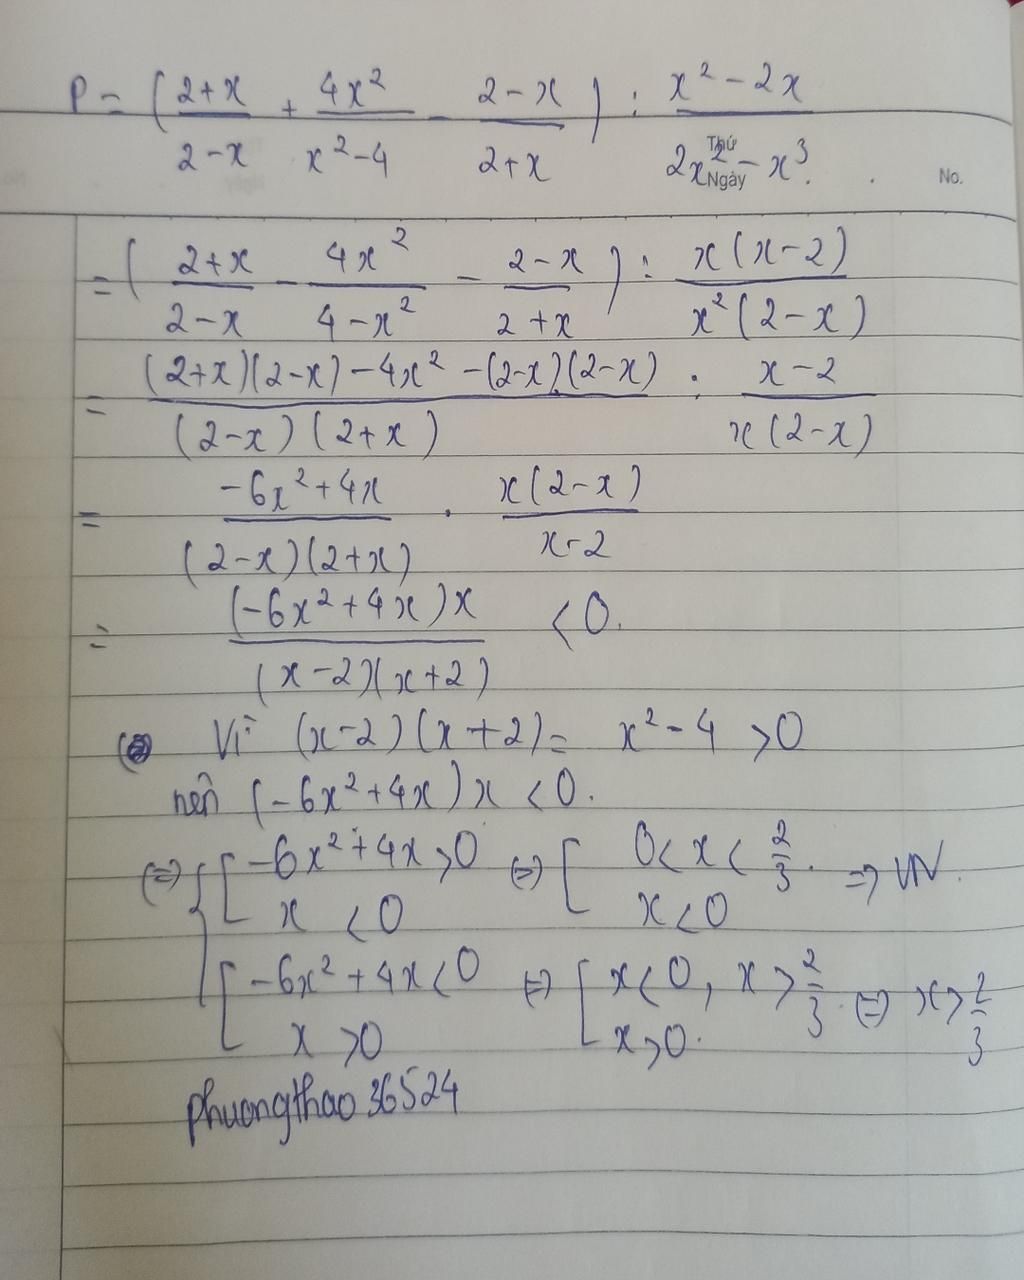 P = ( (2+x)/(2-x) + 4x²/(x²-4) - (2-x)/(2+x) ) : (x²-2x)/(2x²-x³)
Thứ
Ngày
No.
= ( (2+x)/(2-x) - 4x²/(4-x²) - (2-x)/(2+x) ) : x(x-2)/(x²(2-x))
= ((2+x)(2-x) - 4x² - (2-x)(2-x))/((2-x)(2+x)) : (x-2)/(x(2-x))
= (-6x²+4x)/((2-x)(2+x)) . x(2-x)/(x-2)
= ((-6x²+4x)x)/((x-2)(x+2)) < 0.
Vì (x-2)(x+2) = x²-4 > 0
nên (-6x²+4x)x < 0.
(=) { [ -6x²+4x > 0 (=) [ 0 < x < 2/3. => VN.
x < 0 x < 0
[ -6x²+4x < 0 (=) [ x < 0, x > 2/3 (=) x > 2/3
x > 0 x > 0.
phuongthao36524